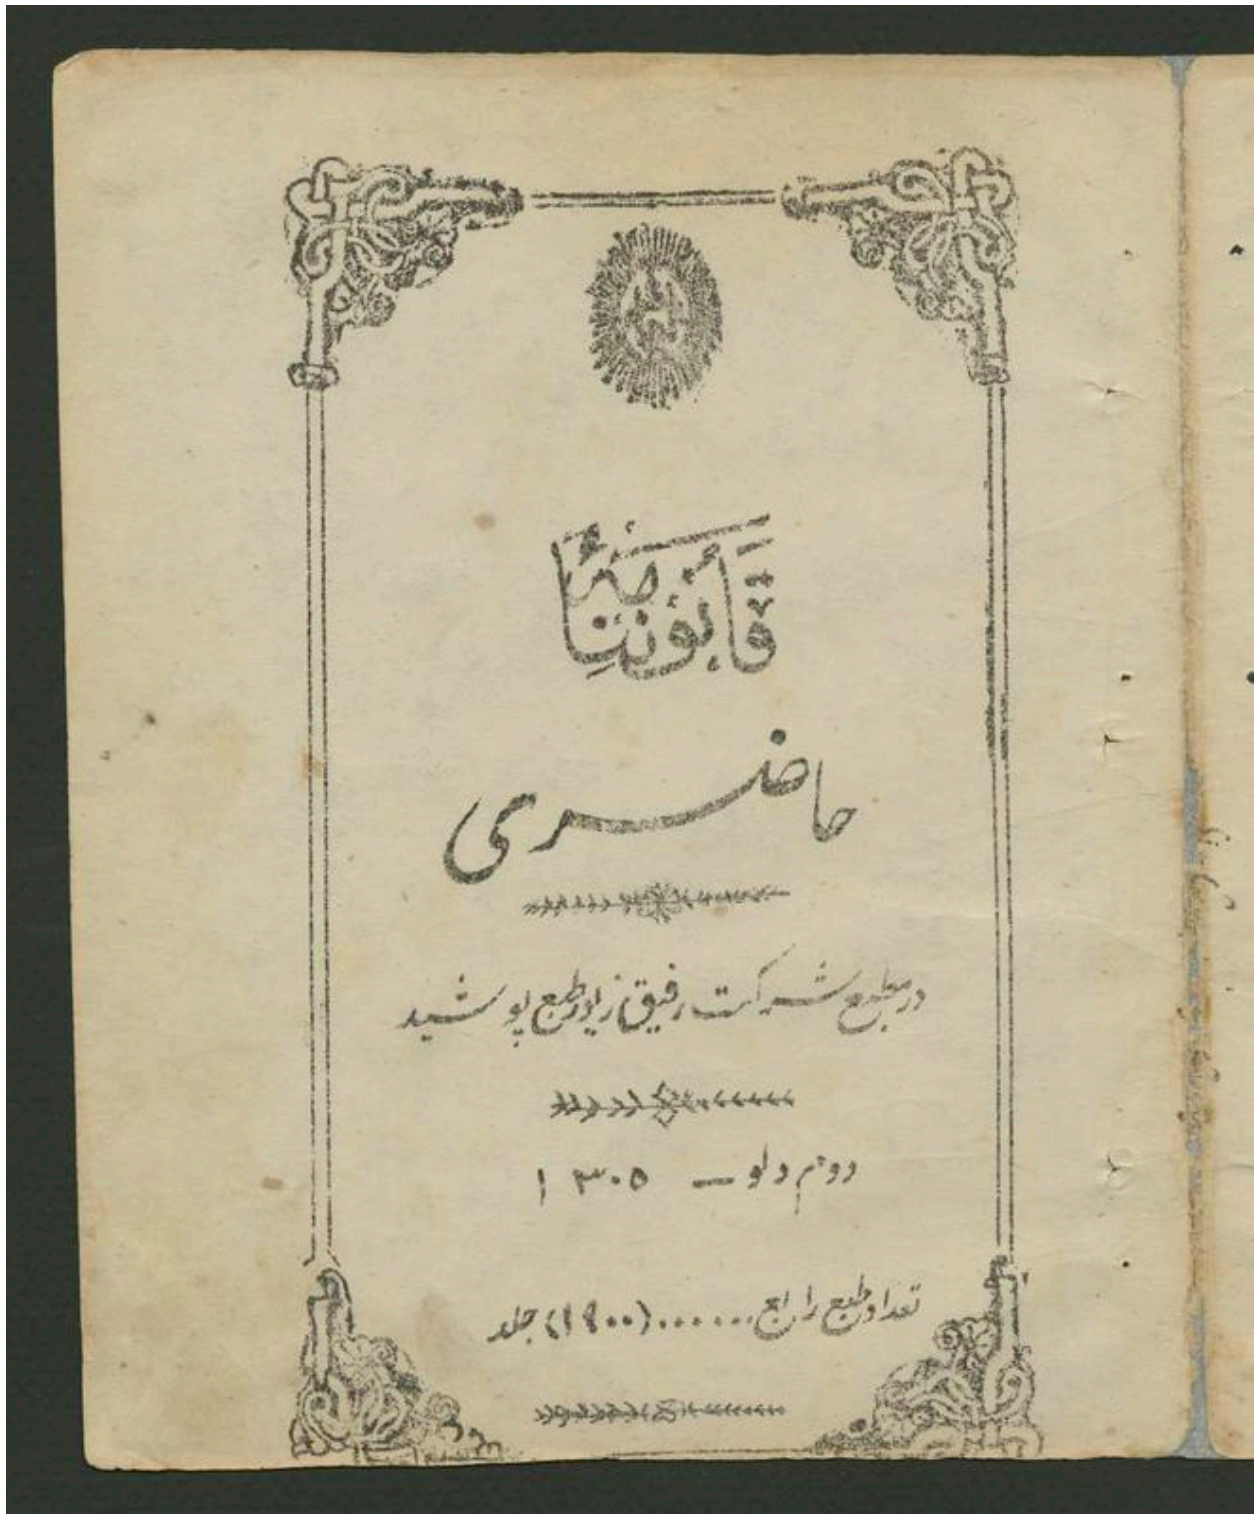 قانوننامهٔ
حاضری
در مطبع شرکت رفیق زیور طبع پوشید
دوم دلو - ۱۳۰۵
تعداد طبع رابع ...... (۱۴۰۰) جلد